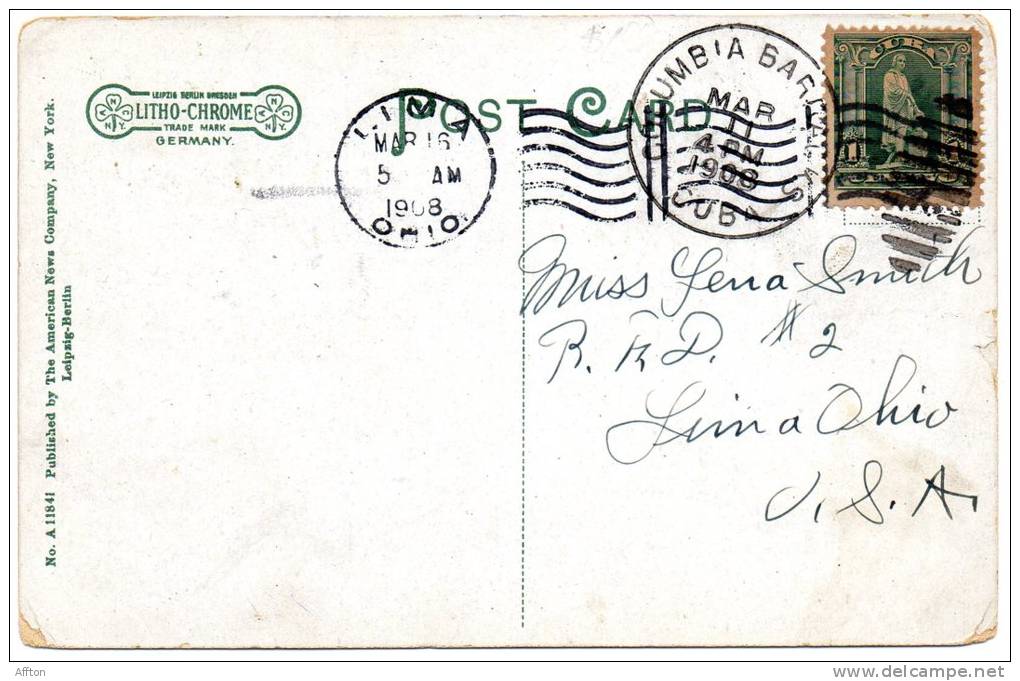 POST CARD
LEIPZIG BERLIN DRESDEN
LITHO-CHROME
TRADE MARK
GERMANY.
N N
A C A C
N.Y. N.Y.
No. A 11841 Published by The American News Company, New York.
Leipzig-Berlin
LIMA
MAR 16
5 AM
1908
OHIO
COLUMBIA BARRACKS
MAR
11
4-PM
1908
CUBA
CUBA
1
Miss Lena Smith
R. F. D. #2
Lima Ohio
U. S. A.
Affton
www.delcampe.net